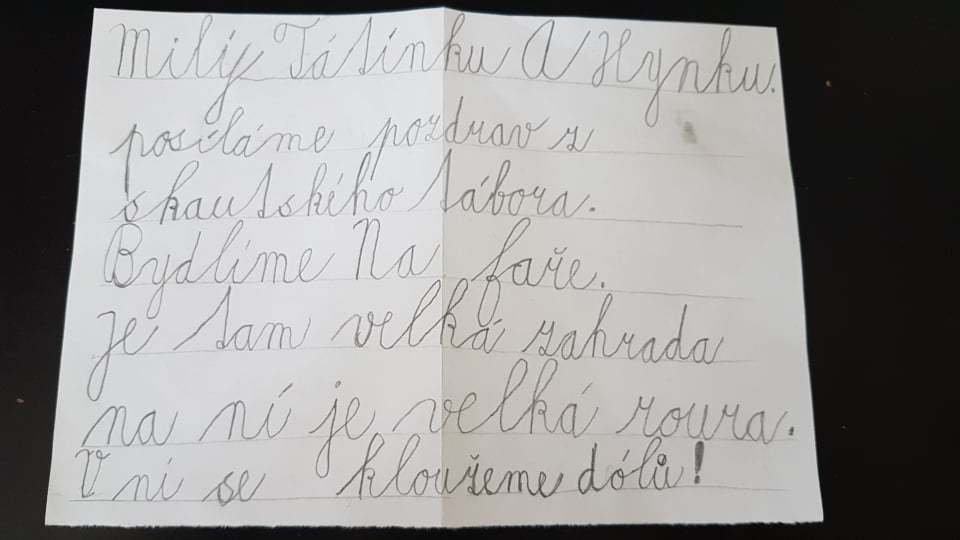 Milý Tátínku A Hynku.
posíláme pozdrav z
skautského tábora.
Bydlíme Na faře.
je tam velká zahrada
na ní je velká roura.
V ní se kloužeme dólů!